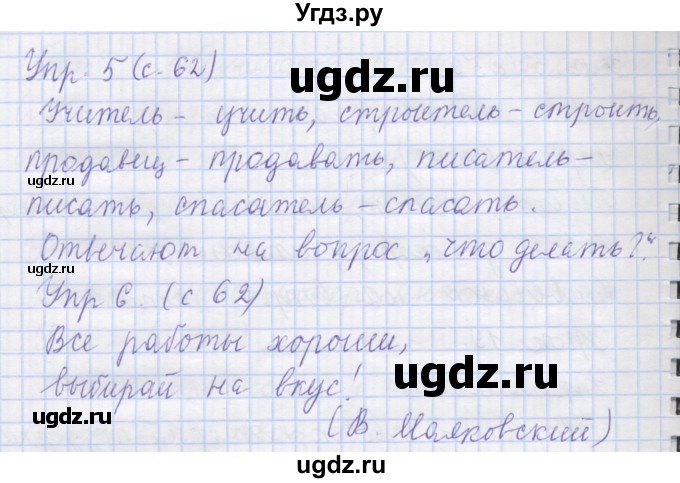 Угдз.ру
Упр. 5 (с. 62)
ugdz.ru
Учитель – учить, строитель – строить,
продавец – продавать, писатель –
ugdz.ru
писать, спасатель – спасать.
Отвечают на вопрос „что делать?"
ugdz.ru
Упр 6. (с 62)
Все работы хороши,
ugdz.ru
выбирай на вкус!
ugdz.ru
(В. Маяковский)
ugdz.ru